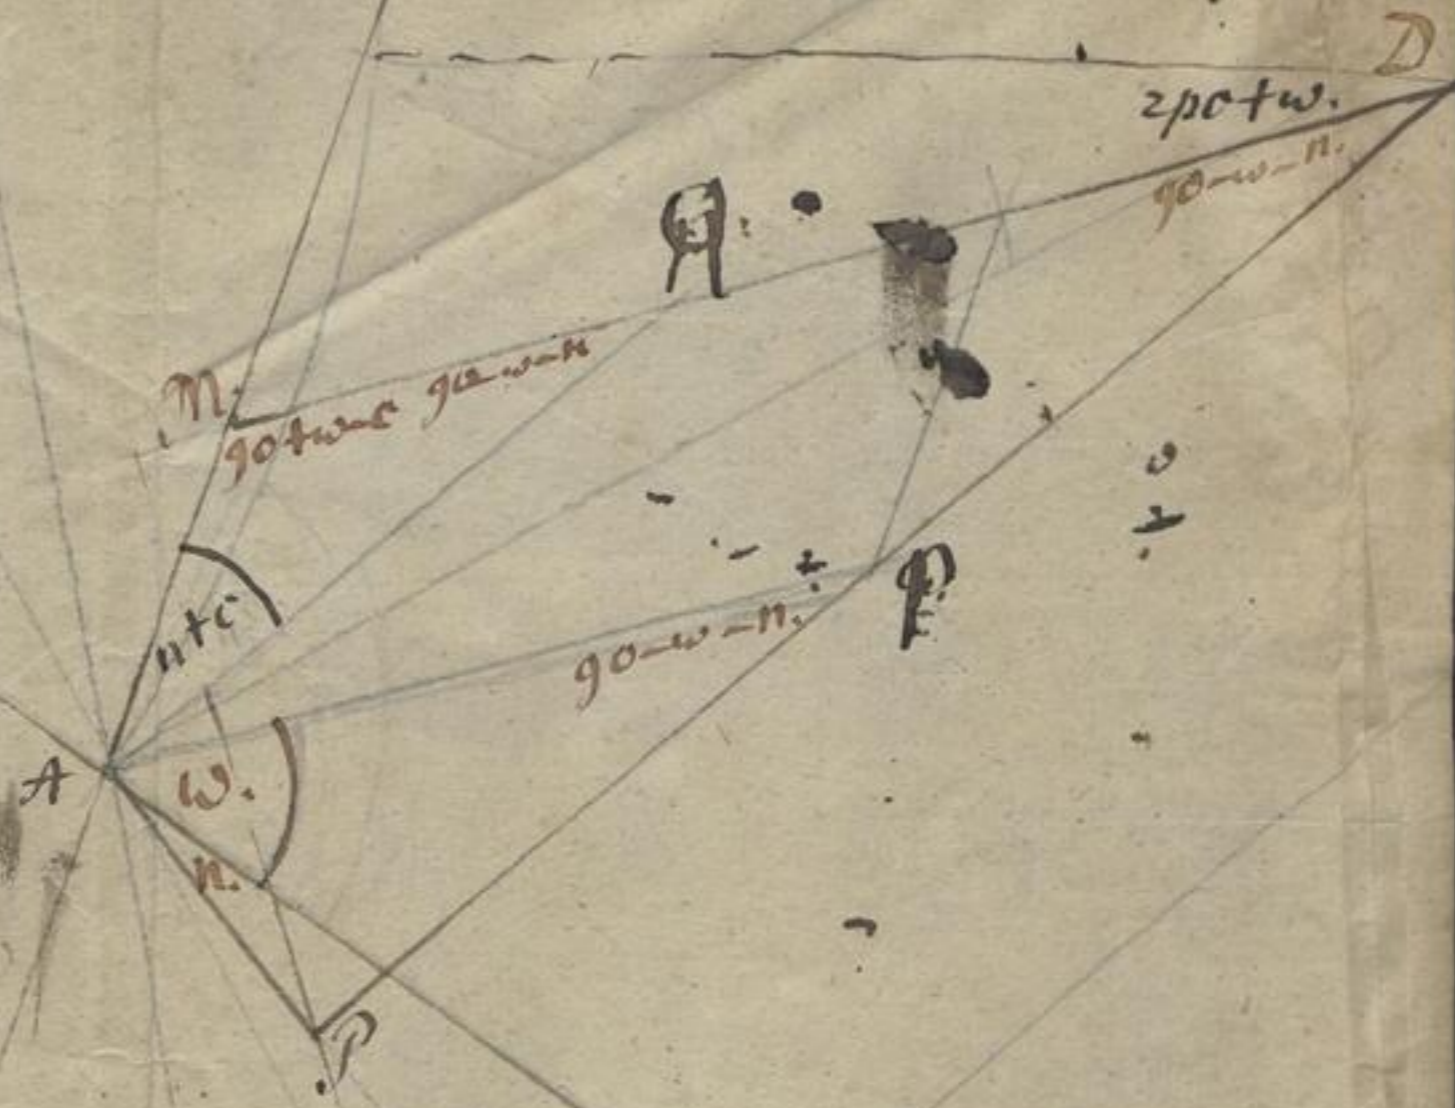 D
2pc+w.
90-w-n.
M.
90+w-c 90-w-n
n+c
90-w-n.
A
w.
n.
P